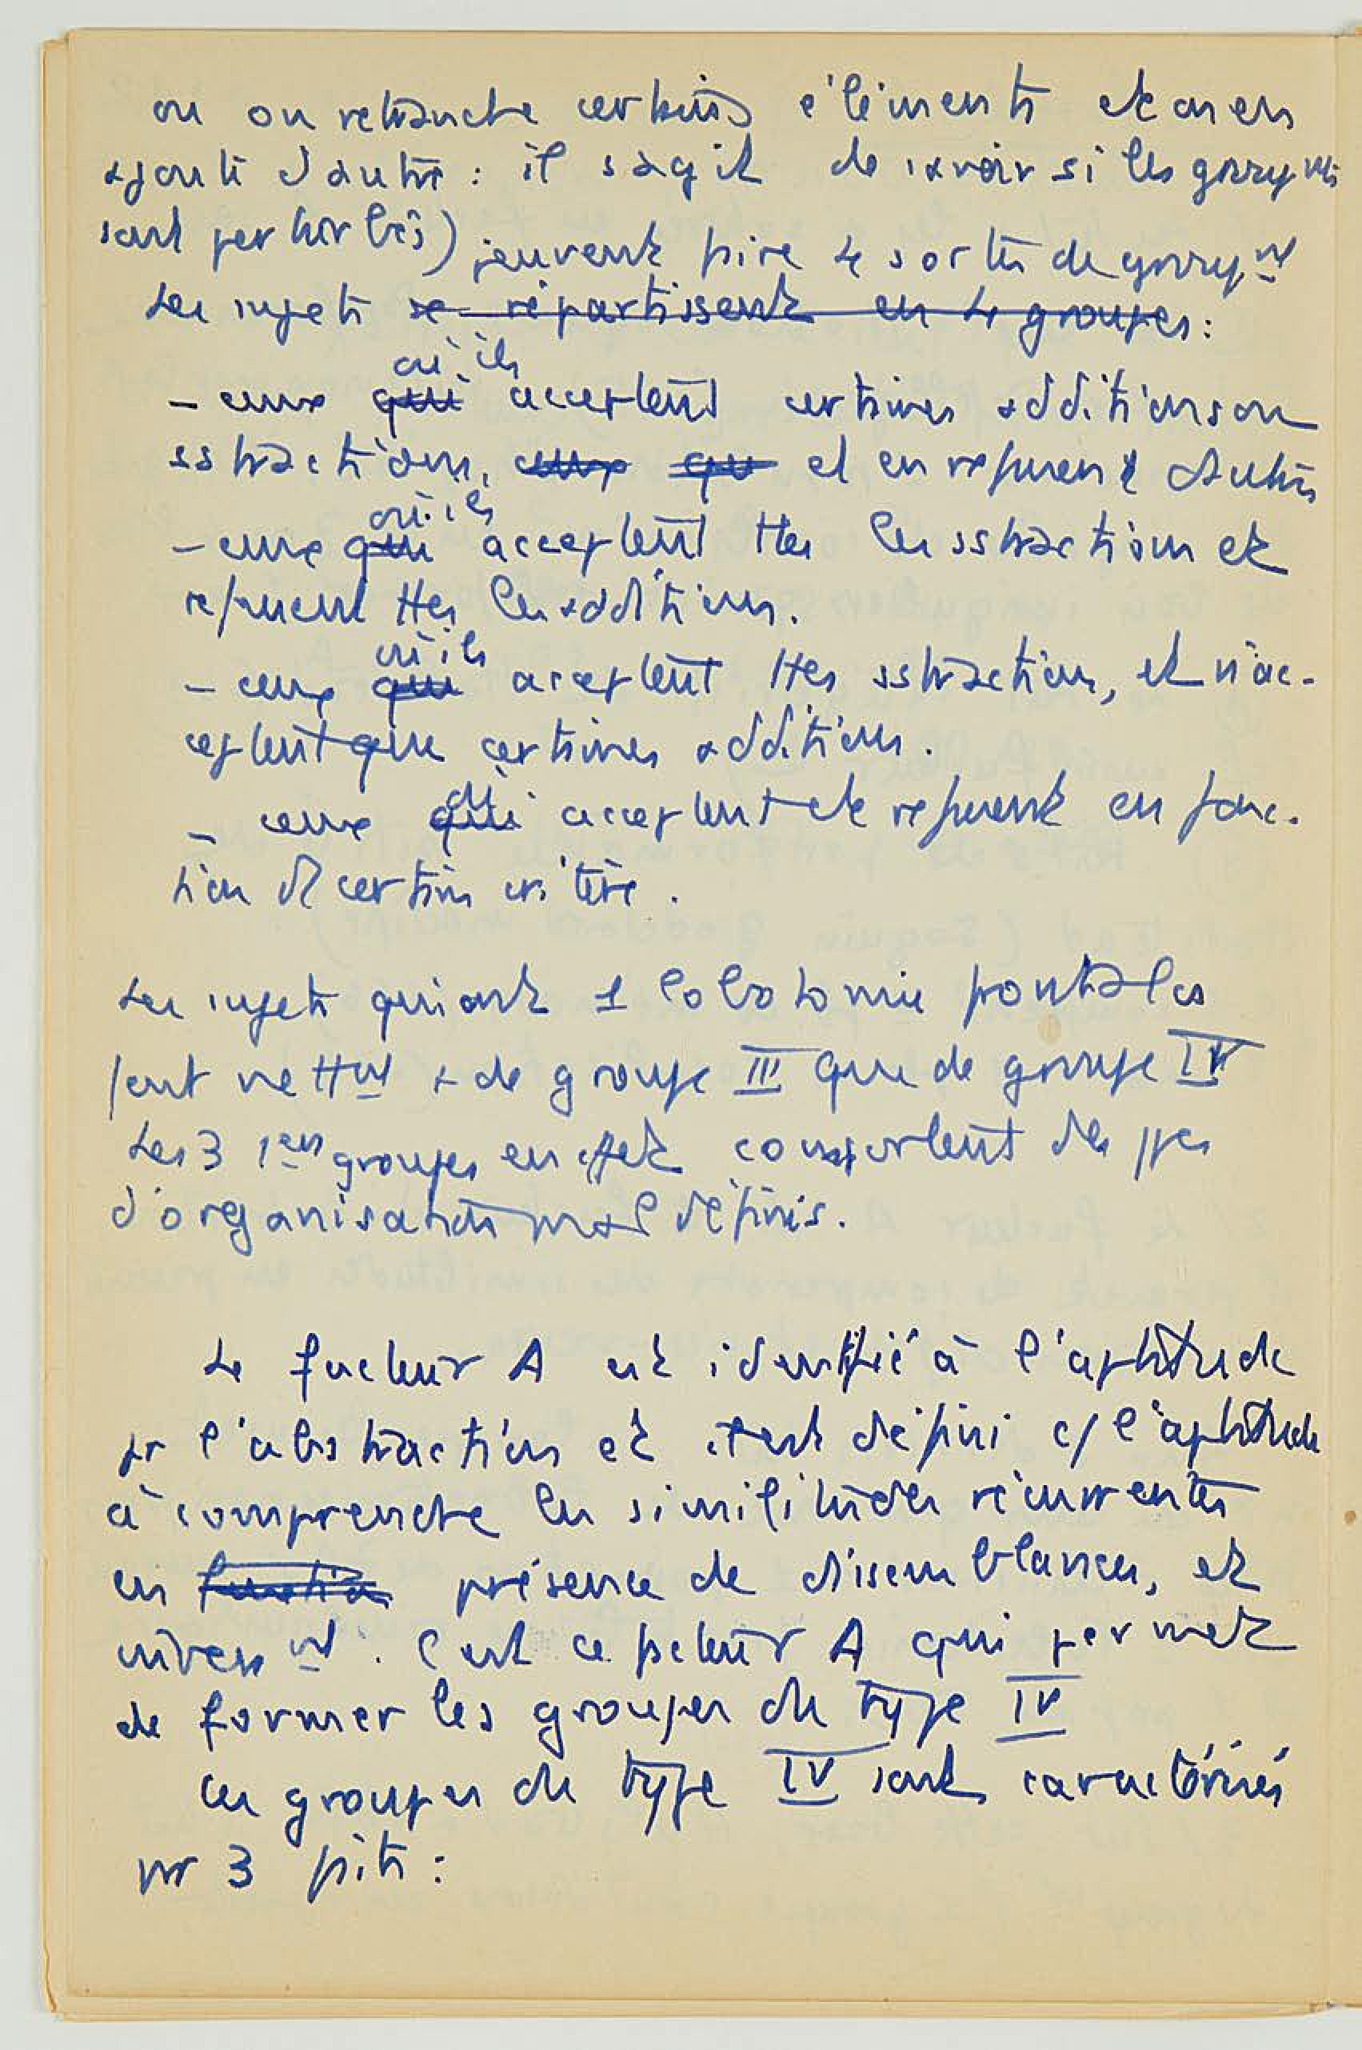 ou on retranche certains éléments et on en
ajoute d'autres : il s'agit de savoir si les groupts
sont perturbés) peuvent faire 4 sortes de groupt
Les sujets se répartissent en 4 groupes :
où ils
– ceux qui acceptent certaines additions ou
sstractions, ceux qu et en refusent d'autres
où ils
– ceux qui acceptent ttes les sstractions et
refusent ttes les additions.
où ils
– ceux qui acceptent ttes sstractions, et n'ac-
ceptent que certaines additions.
où
– ceux qui acceptent et refusent en fonc-
tion de certains critères.
Les sujets qui ont 1 lobotomie frontales
font nettmt + de groupe III que de groupe IV
Les 3 1ers groupes en effet comportent des ppes
d'organisation mal définis.
Le facteur A est identifié à l'aptitude
pr l'abstraction et étant défini c/ l'aptitude
à comprendre les similitudes récurrentes
en présence de dissemblances, et
inversmt. C'est ce facteur A qui permet
de former les groupes du type IV
Ces groupes du type IV sont caractérisés
par 3 faits :